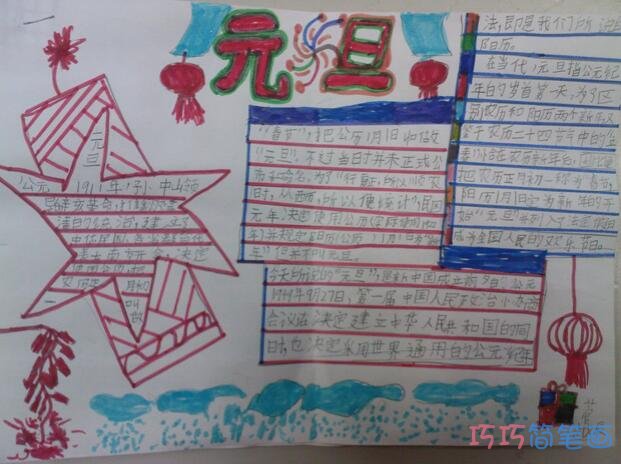 元旦
元旦
公元1911年,孙中山领
导辛亥革命,推翻了满
清的统治,建立了
中华民国。各省都督代
表在南京开会,决定
使用公历,把
农历
叫做
"春节",把公历1月1日叫做
"元旦"。不过当时并未正式公
布和命名,为了"行夏正,所以顺农
时,从西历,所以便统计",民国
元年决定使用公历(实际使用1912
年)并规定阳历(公历)1月1日为"新
年"但并不叫元旦。
今天所说的"元旦",是新中国成立前夕的公元
1949年9月27日,第一届中国人民政治协商
会议在决定建立中华人民共和国的同
时,也决定采用世界通用的公元纪年
法,即是我们所说
阳历。
在当代,元旦指公元纪
年的岁首第一天,为了区
别农历和阳历两个新年,又
鉴于农历二十四节气中的立
春恰在农历新年
把农历正月初一称为"春节",
阳历1月1日定为新年的开
始"元旦"并列入了法定假日
成为全国人民的欢乐
巧巧简笔画